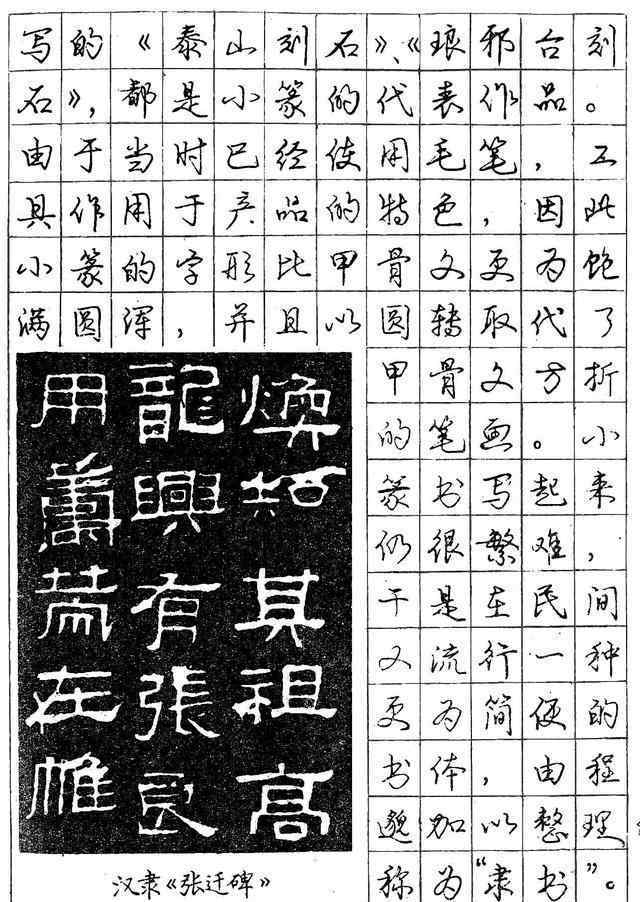 写的《泰山刻石》、《琅邪台刻
石》，都是小篆的代表作品。
由于当时已经使用毛笔，工
具作用于产品的特色，因此
小篆的字形比甲骨文更为饱
满圆浑，并且以圆转取代了
甲骨文方折
的笔画。小
篆书写起来
仍很繁难，
于是在民间
又流行一种
更为简便的
书体，由程
邈加以整理，
称为“隶书”。
煥知其祖高
龍興有張良
用籌策在帷
汉隶《张迁碑》